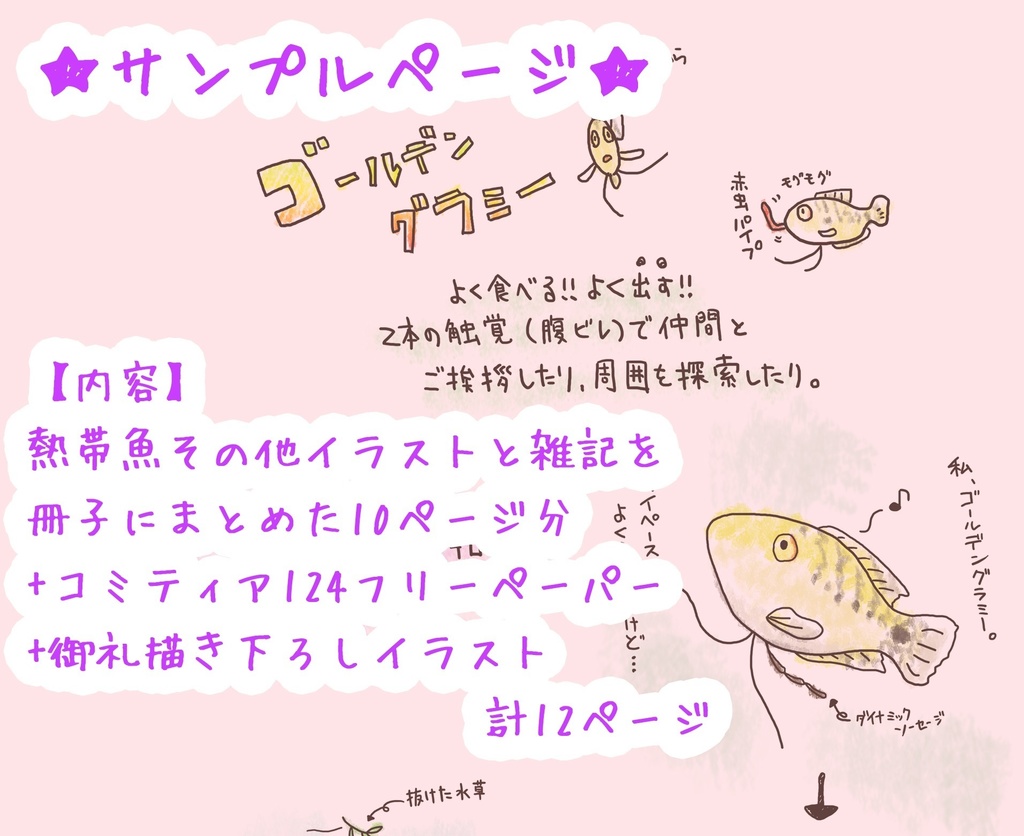 ★サンプルページ★
ら
ゴールデン
グラミー
モグモグ
赤虫パイプ
よく食べる!!よく出す!!
2本の触覚(腹ビレ)で仲間と
ご挨拶したり、周囲を探索したり。
【内容】
熱帯魚その他イラストと雑記を
冊子にまとめた10ページ分
+コミティア124フリーペーパー
+御礼描き下ろしイラスト
計12ページ
イペース
よく
けど…
私、ゴールデングラミー。
ダイナミック
ソーセージ
抜けた水草